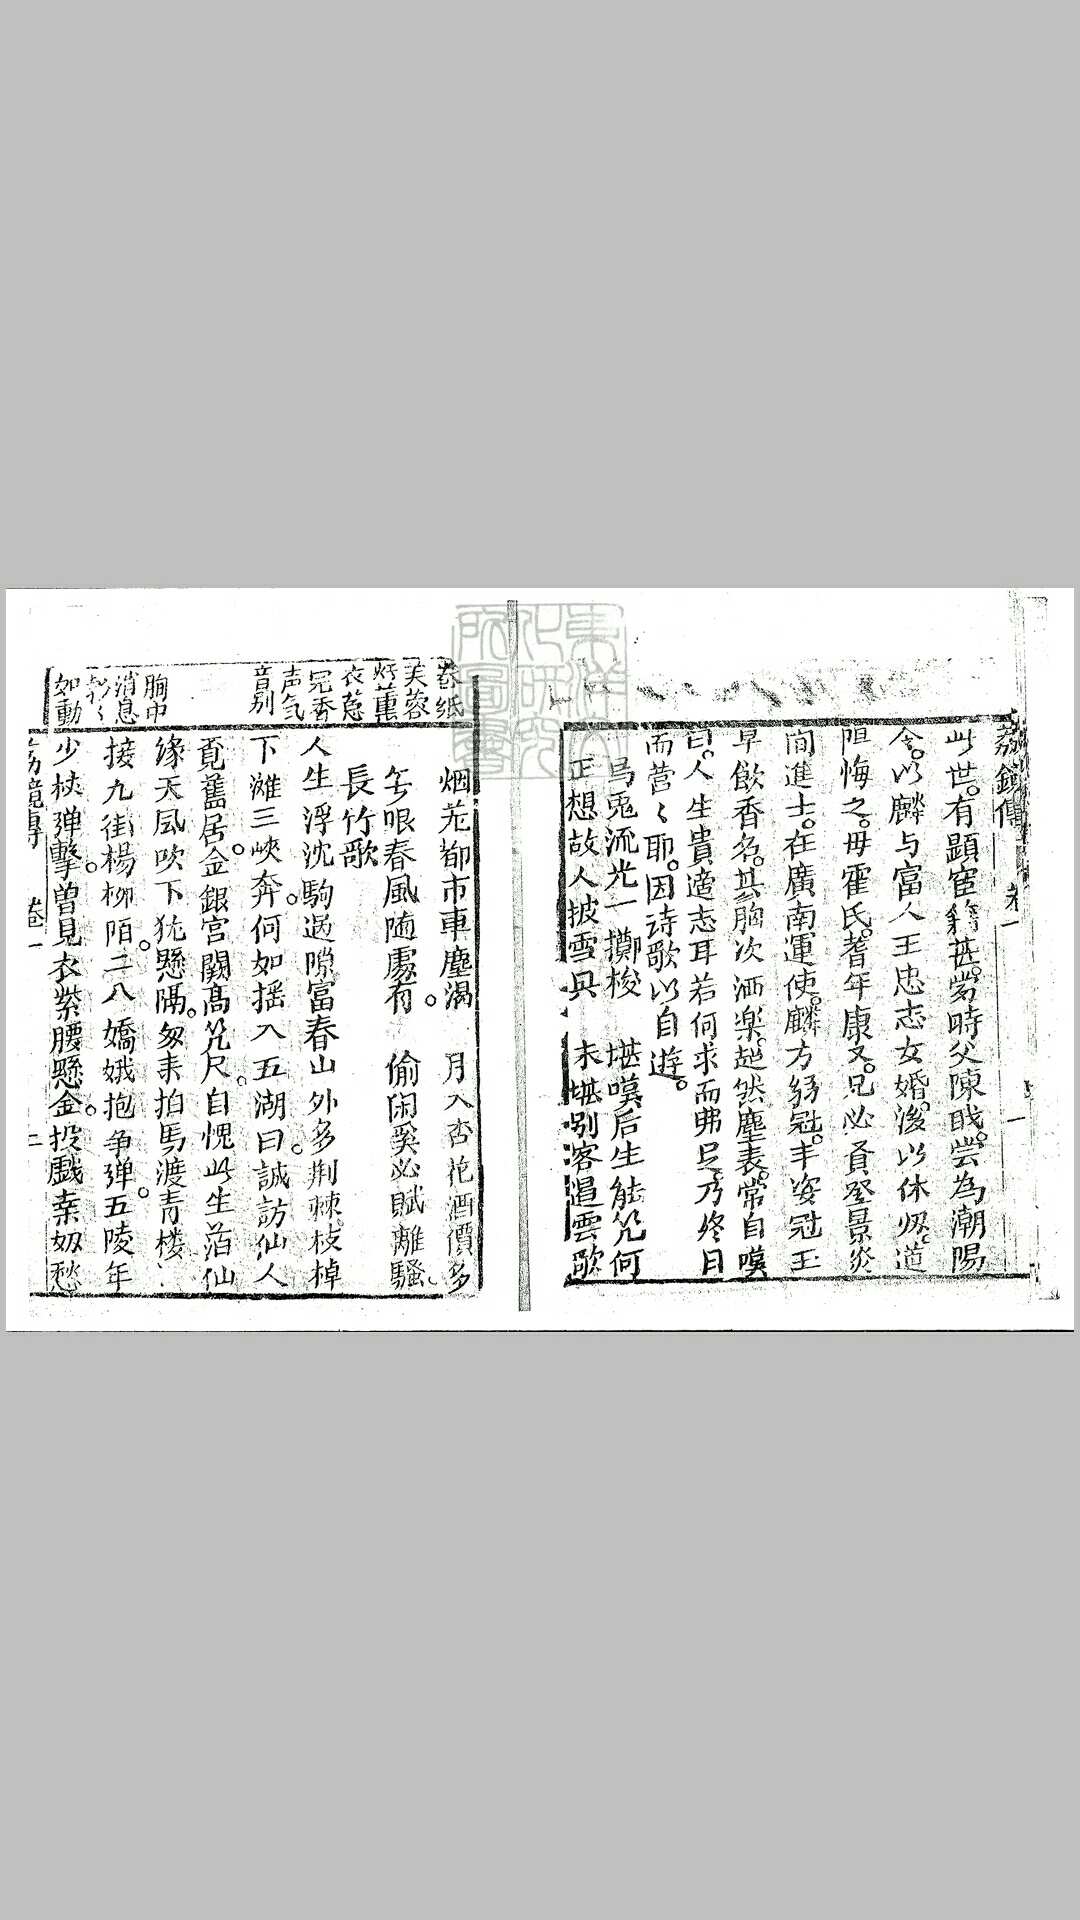 荔鏡傳 卷一 一
此世。有顕宦籍甚。當時父陳戝。嘗為潮陽
令。以麟与富人王忠志女婚。後以休
隍悔之。毋霍氏。耆年康又。兄必賁登景炎
間進士。在廣南運使。麟方弱冠。丰姿冠玉
早飲香名。其胸次洒楽。超然塵表。常自嘆
曰。人生貴適志耳若何求而弗足。乃終日
而营〻耶。因诗歌以自遊。
烏兎流光一擲梭 堪嘆后生能㡬何
正想故人披雪具 未堪别客遏雲歌
烟花都市車塵湯 月入杏花酒價多
春風随處有。 偷闲奚必賦離騷。
長竹歌
人生浮沈駒過隙富春山外多荆棘。枝棹
下灘三峽奔。何如摇入五湖曰。誠訪仙人
覔舊居。金銀宮闕髙㡬尺。自愧此生箔仙
緣天風吹下犹懸隔。匆耒拍馬渡青楼
接九街楊柳陌。二八嬌娥抱争弹。五陵年
少挟弹擊。曽見衣紫腰懸金。投戲
荔鏡傳 卷一 二
卷紙
芙蓉
衣惹
完香
声气
音别
胸中
消息
如動